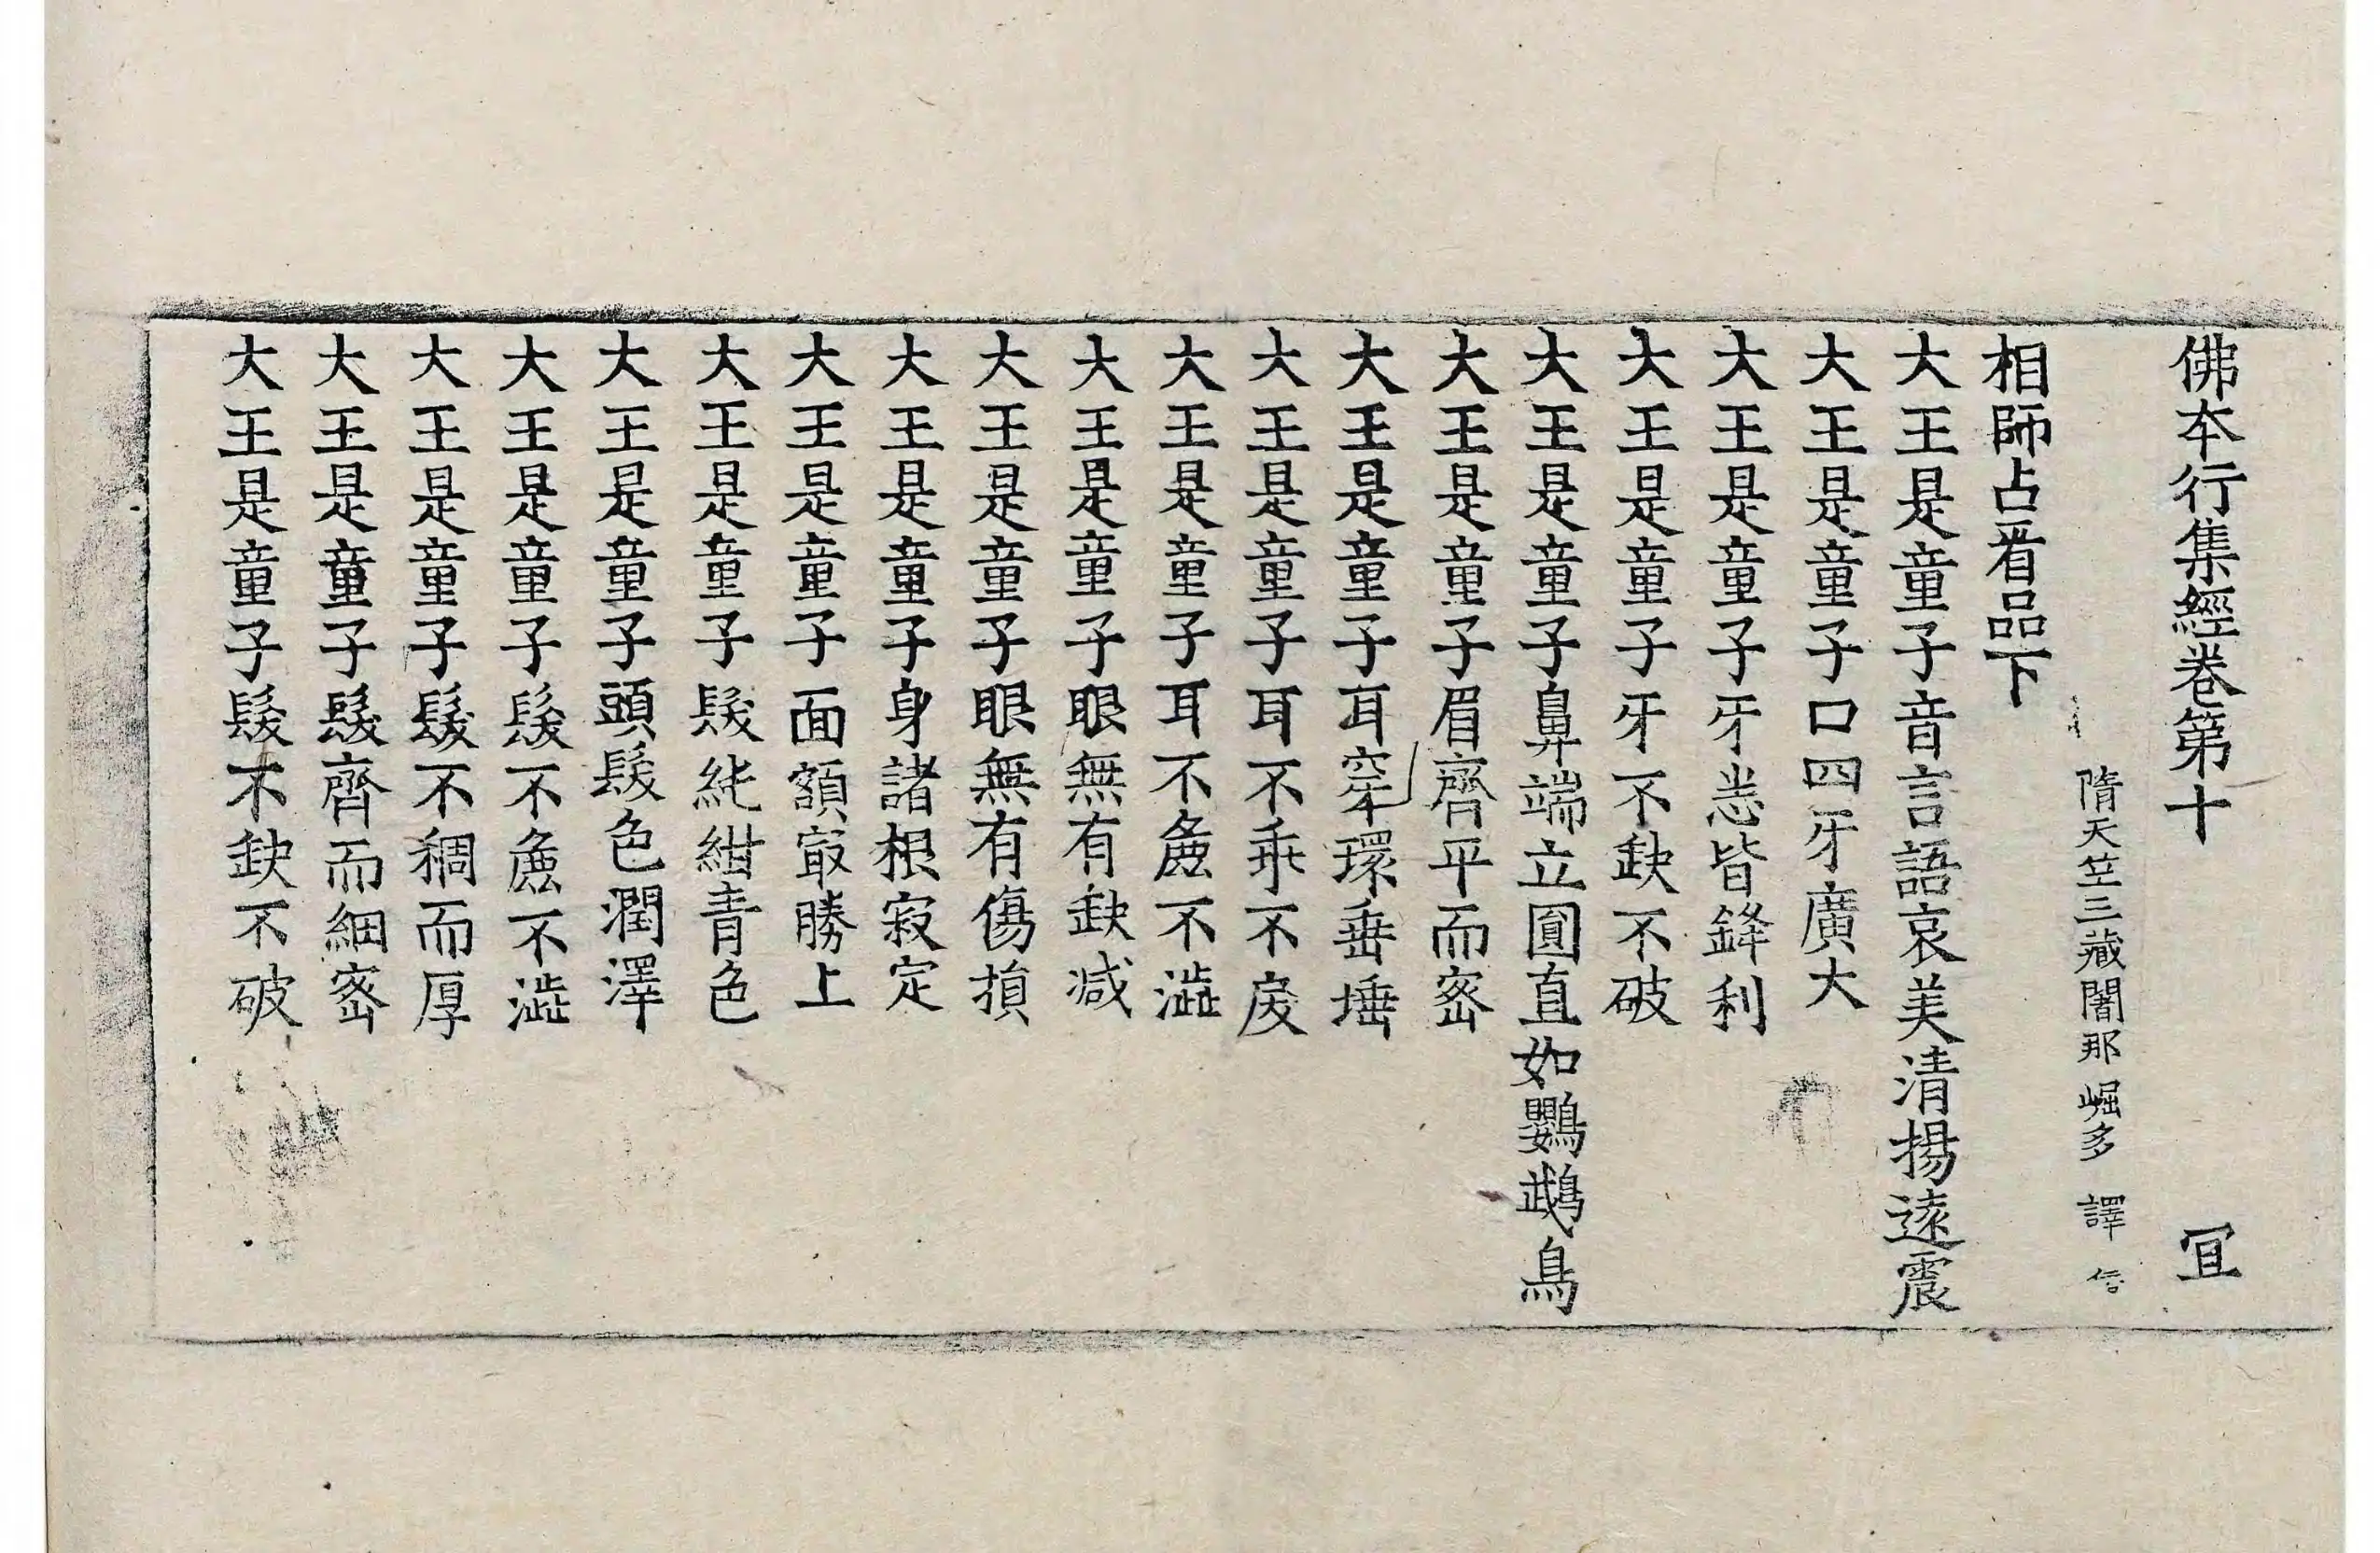 佛本行集經卷第十 冝
隋天竺三藏闍那崛多 譯
相師占㸔品下
大王是童子音言語哀美清揚遠震
大王是童子口四牙廣大
大王是童子牙㤙皆鋒利
大王是童子牙不缺不破
大王是童子鼻端立圓直如鸚鵡鳥
大王是童子眉齊平而宻
大王是童子耳穿環垂埵
大王是童子耳不乖不戾
大王是童子耳不麁不澁
大王是童子眼無有缺减
大王是童子眼無有傷損
大王是童子身諸根寂定
大王是童子面額㝡勝上
大王是童子髮純紺青色
大王是童子頭髮色潤澤
大王是童子髮不麁不澁
大王是童子髮不稠而厚
大王是童子髮齊而細宻
大王是童子髮不缺不破